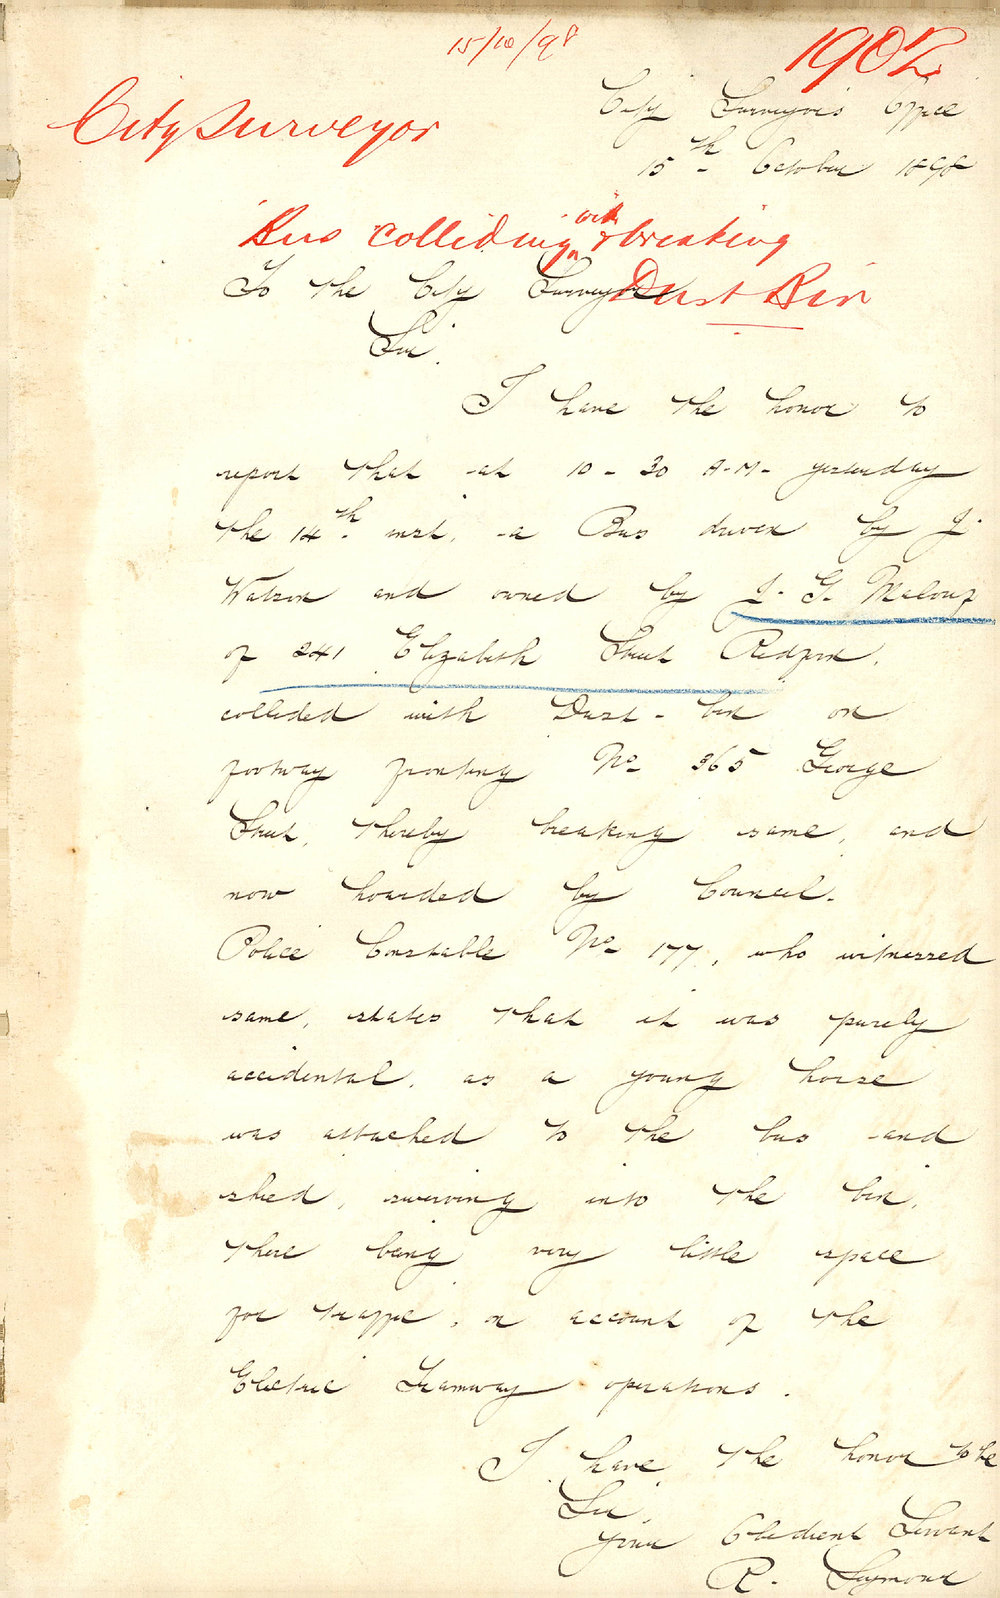 15/10/98
1902
City Surveyor
City Surveyor's Office
15th October 1898
Bus colliding with & breaking
Dust Bin
To the City Surveyor
Sir.
I have the honor to
report that at 10-30 A.M. yesterday
the 14th inst, a Bus driven by J.
Watson and owned by J. G. Malouf
of 241 Elizabeth Street Redfern.
collided with Dust-bin on
footway fronting No 365 George
Street, thereby breaking same, and
now hoarded by Council.
Police Constable No 177, who witnessed
same, states that it was purely
accidental, as a young horse
was attached to the bus and
shied, swerving into the bin,
there being very little space
for traffic, on account of the
Electric Tramway operations.
I have the honor to be
Sir
Your Obedient Servant
R. Seymour